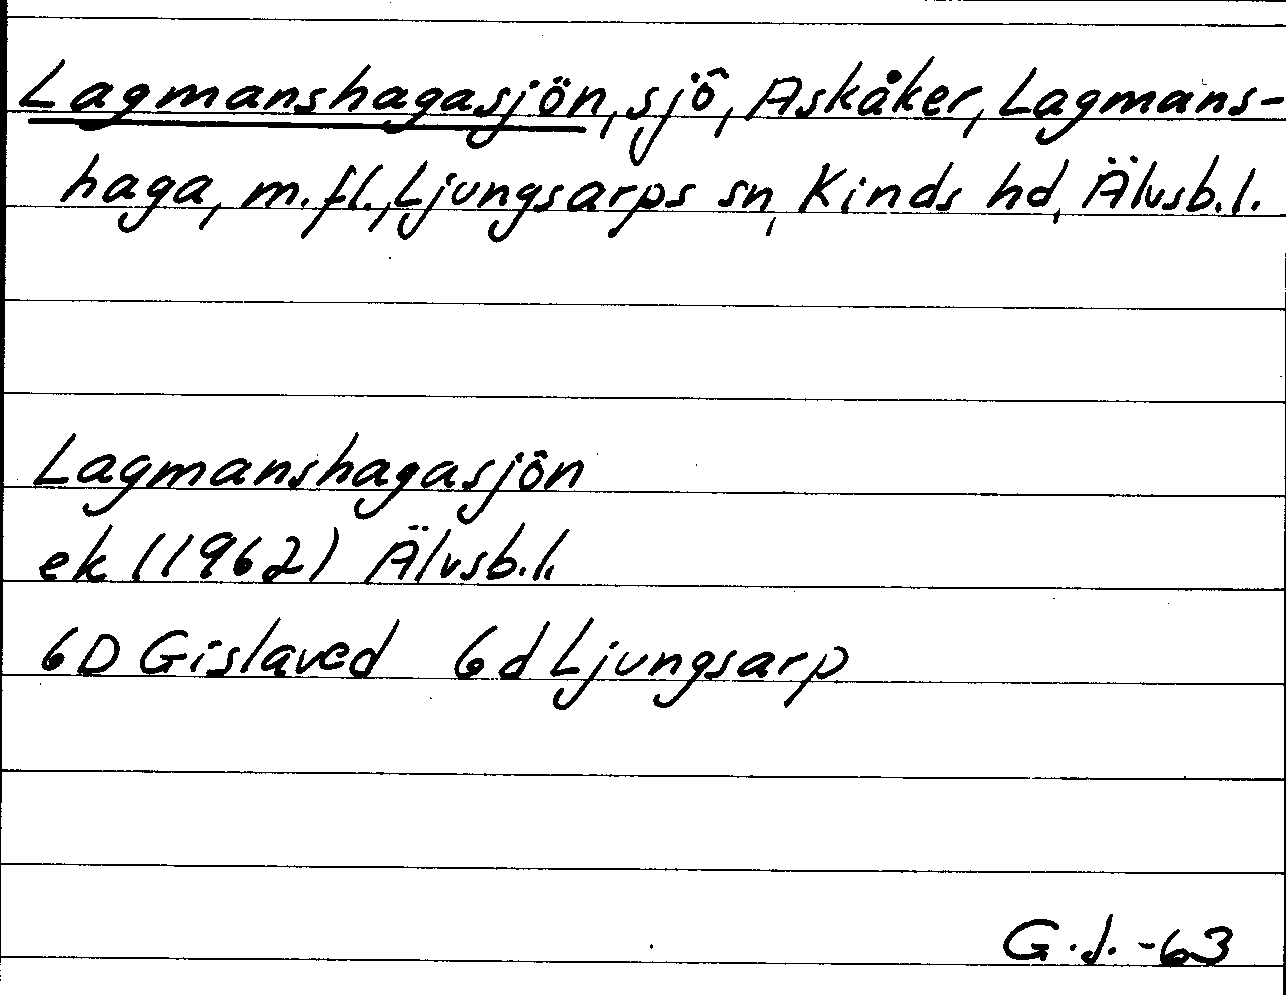 Lagmanshagasjön, sjö, Askåker, Lagmans-
haga, m.fl., Ljungsarps sn, Kinds hd, Älvsb.l.
Lagmanshagasjön
ek (1962) Älvsb.l.
6D Gislaved 6d Ljungsarp
G.J. -63